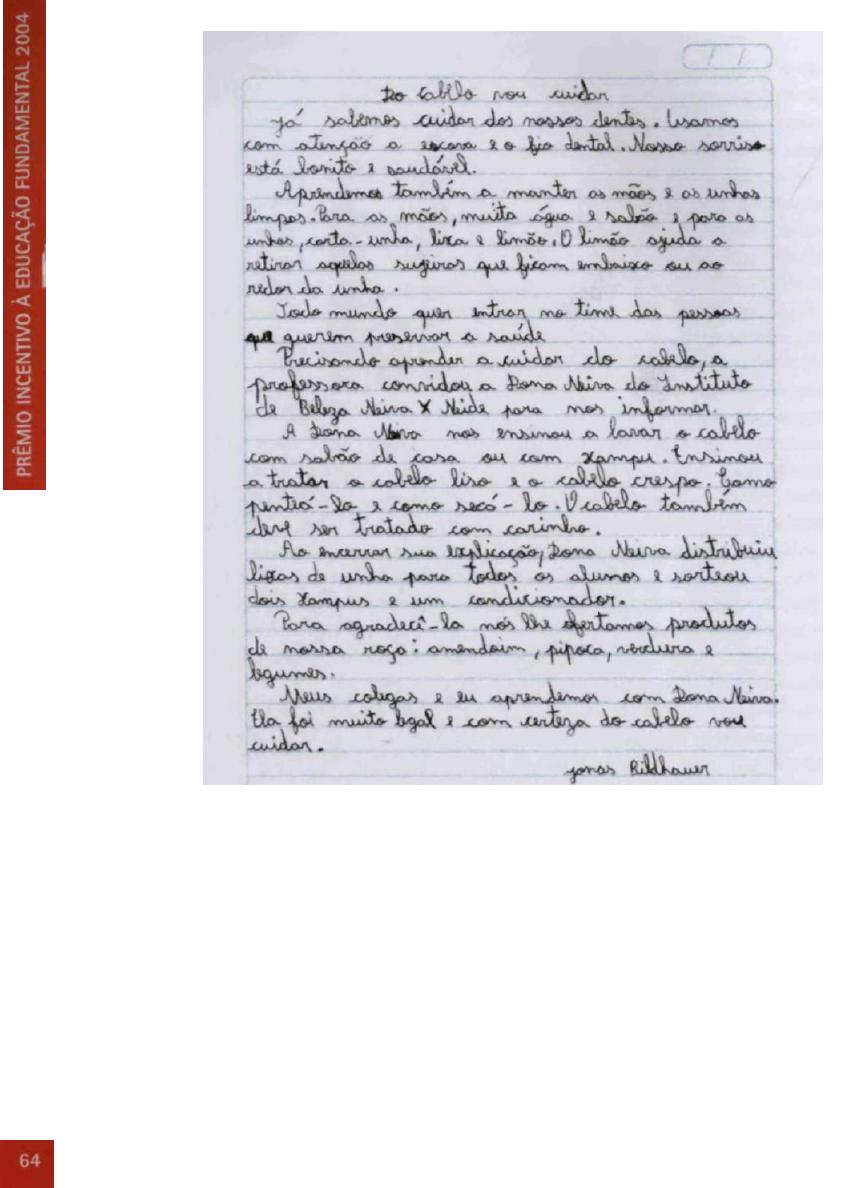 PRÊMIO INCENTIVO À EDUCAÇÃO FUNDAMENTAL 2004
Do cabelo vou cuidar
Já sabemos cuidar dos nossos dentes. Usamos
com atenção a escova e o fio dental. Nosso sorriso
está bonito e saudável.
Aprendemos também a manter as mãos e as unhas
limpas. Para as mãos, muita água e sabão e para as
unhas, corta-unha, lixa e limão. O limão ajuda a
retirar aquelas sugeiras que ficam embaixo ou ao
redor da unha.
Todo mundo quer entrar no time das pessoas
que querem preservar a saúde
Precisando aprender a cuidar do cabelo, a
professora convidou a Dona Neiva do Instituto
de Beleza Neiva X Neide para nos informar.
A Dona Neiva nos ensinou a lavar o cabelo
com sabão de casa ou com xampu. Ensinou
a tratar o cabelo liso e o cabelo crespo. Como
penteá-lo e como secá-lo. O cabelo também
deve ser tratado com carinho.
Ao encerrar sua explicação, Dona Neiva distribuiu
lixas de unha para todos os alunos e sorteou
dois xampus e um condicionador.
Para agradecê-la nós lhe ofertamos produtos
de nossa roça: amendoim, pipoca, verdura e
legumes.
Meus colegas e eu aprendemos com Dona Neiva.
Ela foi muito legal e com certeza do cabelo vou
cuidar.
Jonas Bildhauer
64